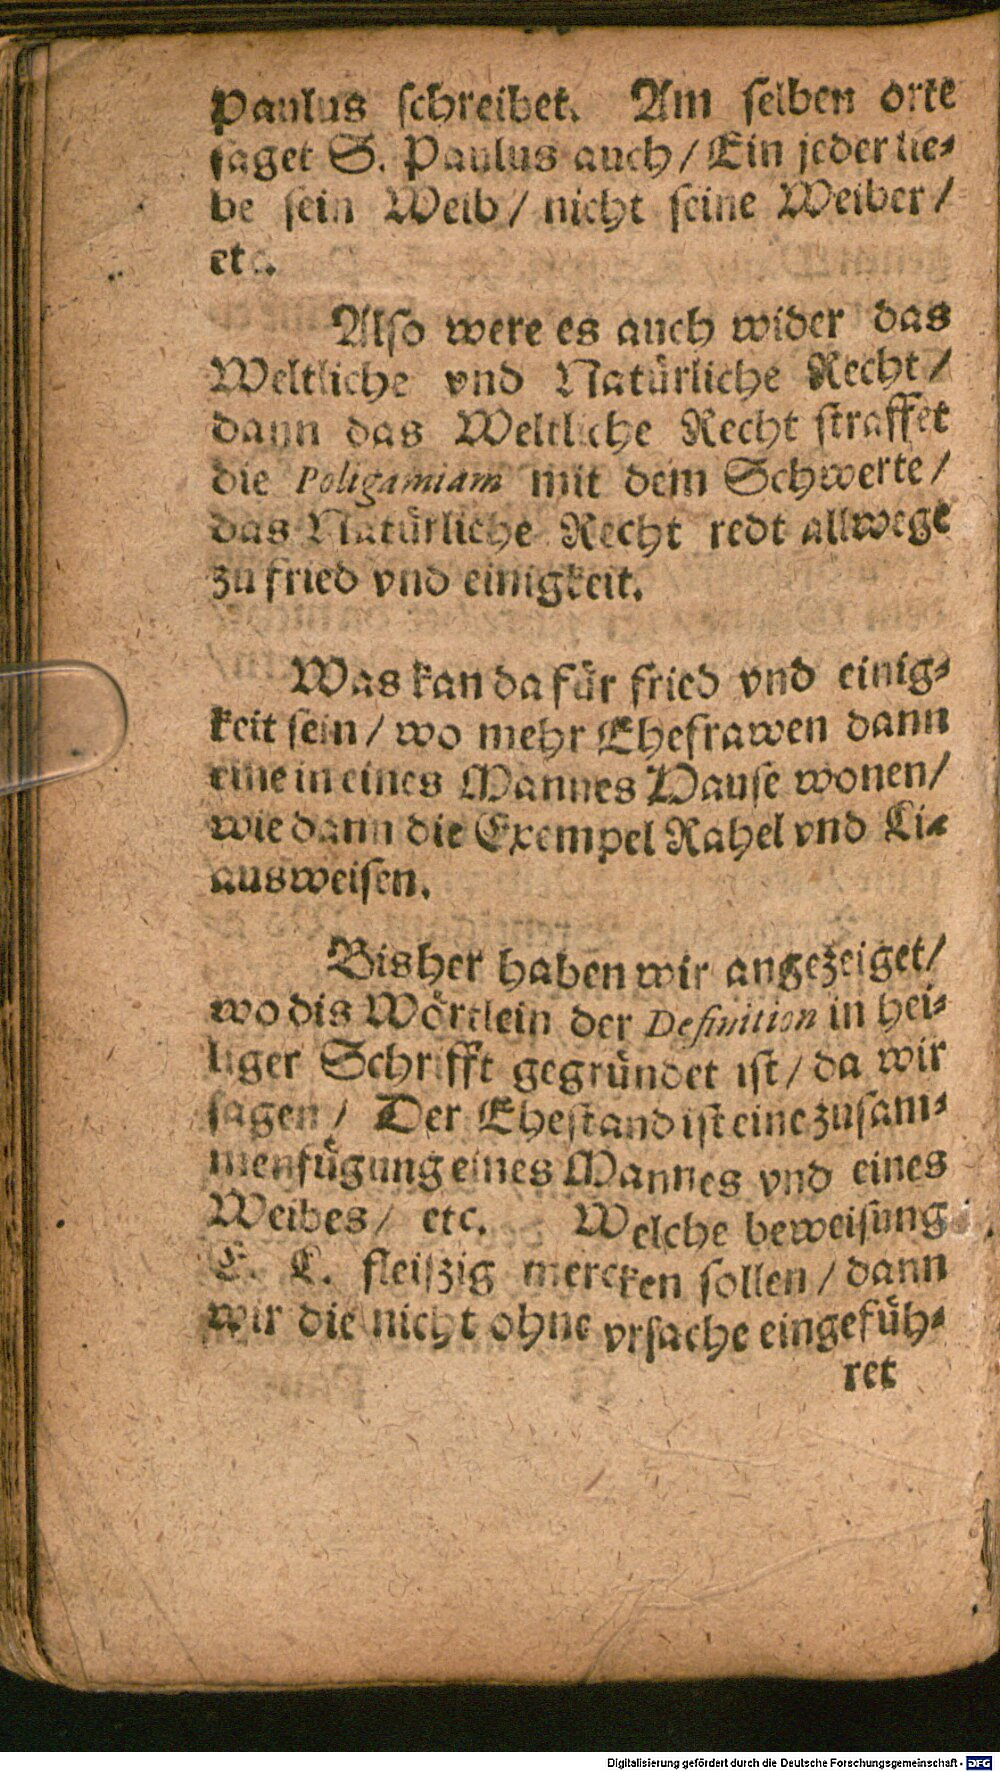 Paulus schreibet. Am selben orte
saget S. Paulus auch / Ein jeder lie-
be sein Weib / nicht seine Weiber /
etc.
Also were es auch wider das
Weltliche vnd Natürliche Recht /
dann das Weltliche Recht straffet
die Poligamiam mit dem Schwerte /
das Natürliche Recht redt allwege
zu fried vnd einigkeit.
Was kan da für fried vnd einig-
keit sein / wo mehr Ehefrawen dann
eine in eines Mannes Hause wonen /
wie dann die Exempel Rahel vnd Li-
ausweisen.
Bisher haben wir angezeiget /
wo dis Wörtlein der Definition in hei-
liger Schrifft gegründet ist / da wir
sagen / Der Ehestand ist eine zusam-
menfügung eines Mannes vnd eines
Weibes / etc. Welche beweisung
E. L. fleiszig mercken sollen / dann
wir die nicht ohne vrsache eingefüh-
ret
Digitalisierung gefördert durch die Deutsche Forschungsgemeinschaft - DFG